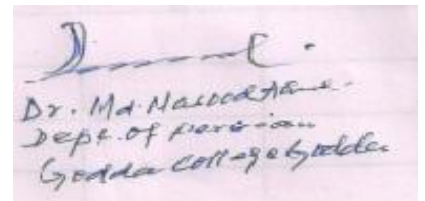 Dr. Md. Masood Alam.
Dept. of persian
Godda College Godda